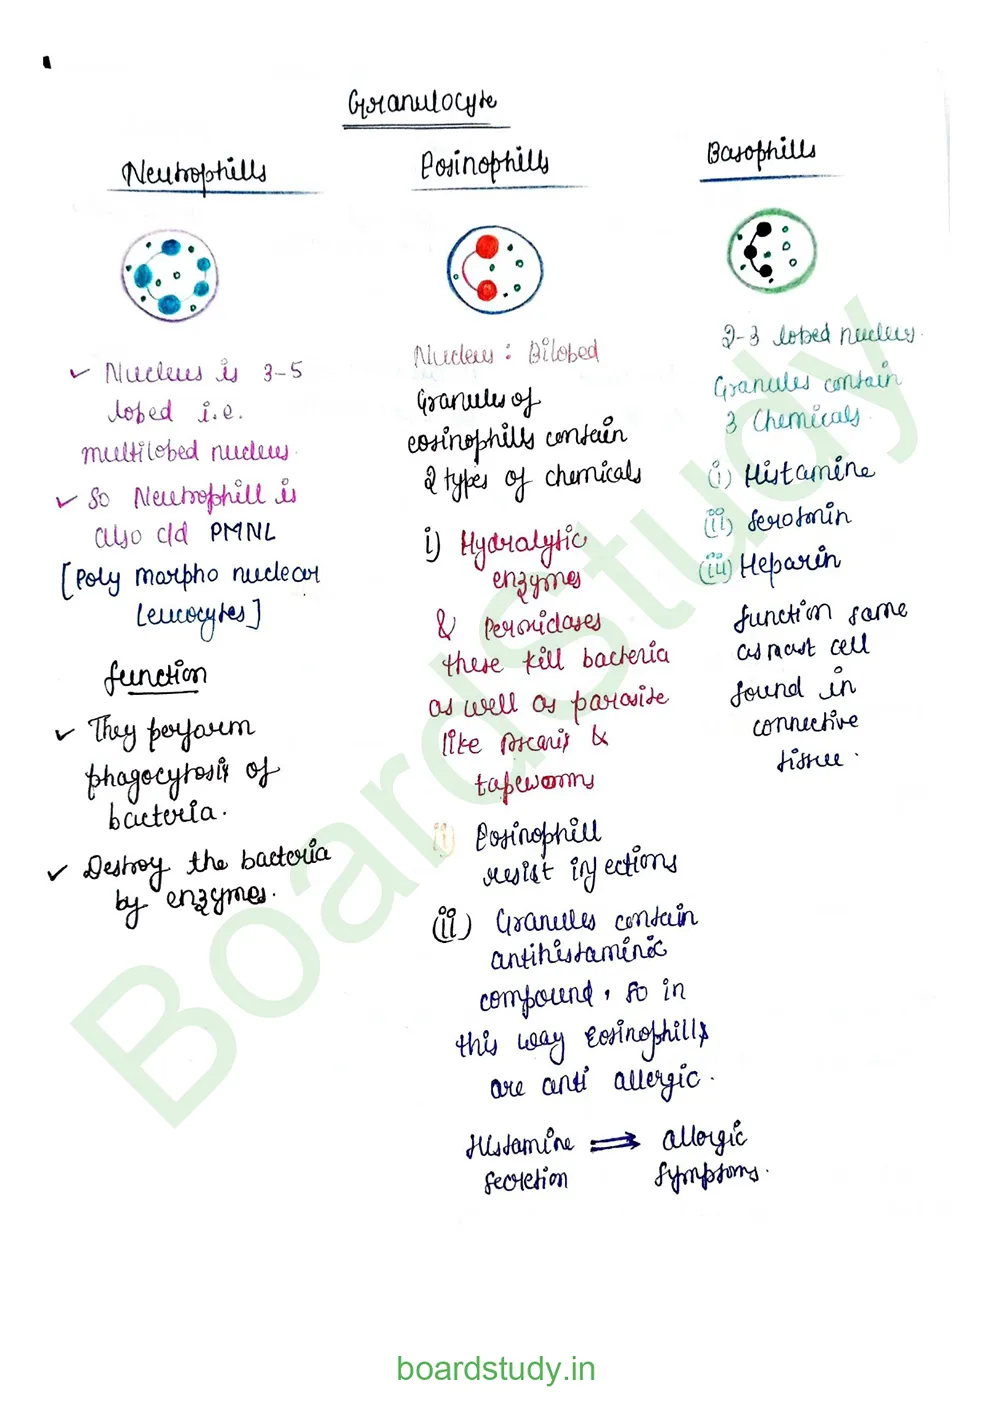 Granulocyte
Neutrophills
✓ Nucleus is 3-5
lobed i.e.
multilobed nucleus.
✓ So Neutrophill is
also c/d PMNL
[Poly morpho nuclear
Leucocytes]
function
✓ They perform
phagocytosis of
bacteria.
✓ Destroy the bacteria
by enzymes.
Eosinophills
Nucleus : Bilobed
Granules of
eosinophills contain
2 types of chemicals
i) Hydralytic
enzymes
& Peroxidases
these kill bacteria
as well as parasite
like Ascaris &
tapeworms
(i) Eosinophill
resist infections
(ii) Granules contain
antihistaminic
compound, so in
this way Eosinophills
are anti allergic.
Histamine ⟹ allergic
secretion symptoms.
Basophills
2-3 lobed nucleus.
Granules contain
3 Chemicals.
(i) Histamine
(ii) Serotonin
(iii) Heparin
function same
as mast cell
found in
connective
tissue.
BoardStudy
boardstudy.in